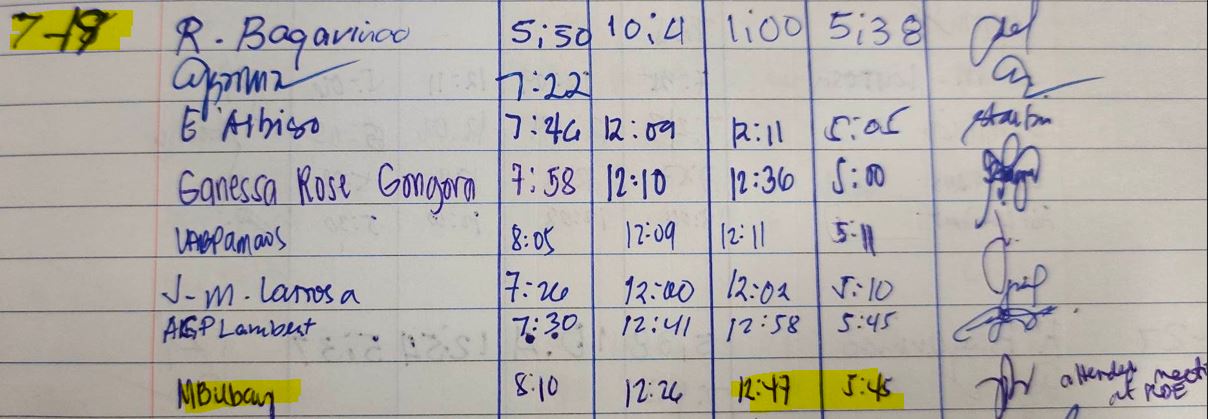 7-19 R. Bagarinao 5:50 10:4 1:00 5:38
7:22
E Albiso 7:46 12:09 12:11 5:05
Ganessa Rose Gongora 7:58 12:10 12:36 5:00
8:05 12:09 12:11 5:11
J-m. Larrosa 7:26 12:00 12:02 5:10
AKGP Lambert 7:30 12:41 12:58 5:45
MBulbay 8:10 12:26 12:47 5:45 attended meeti
at